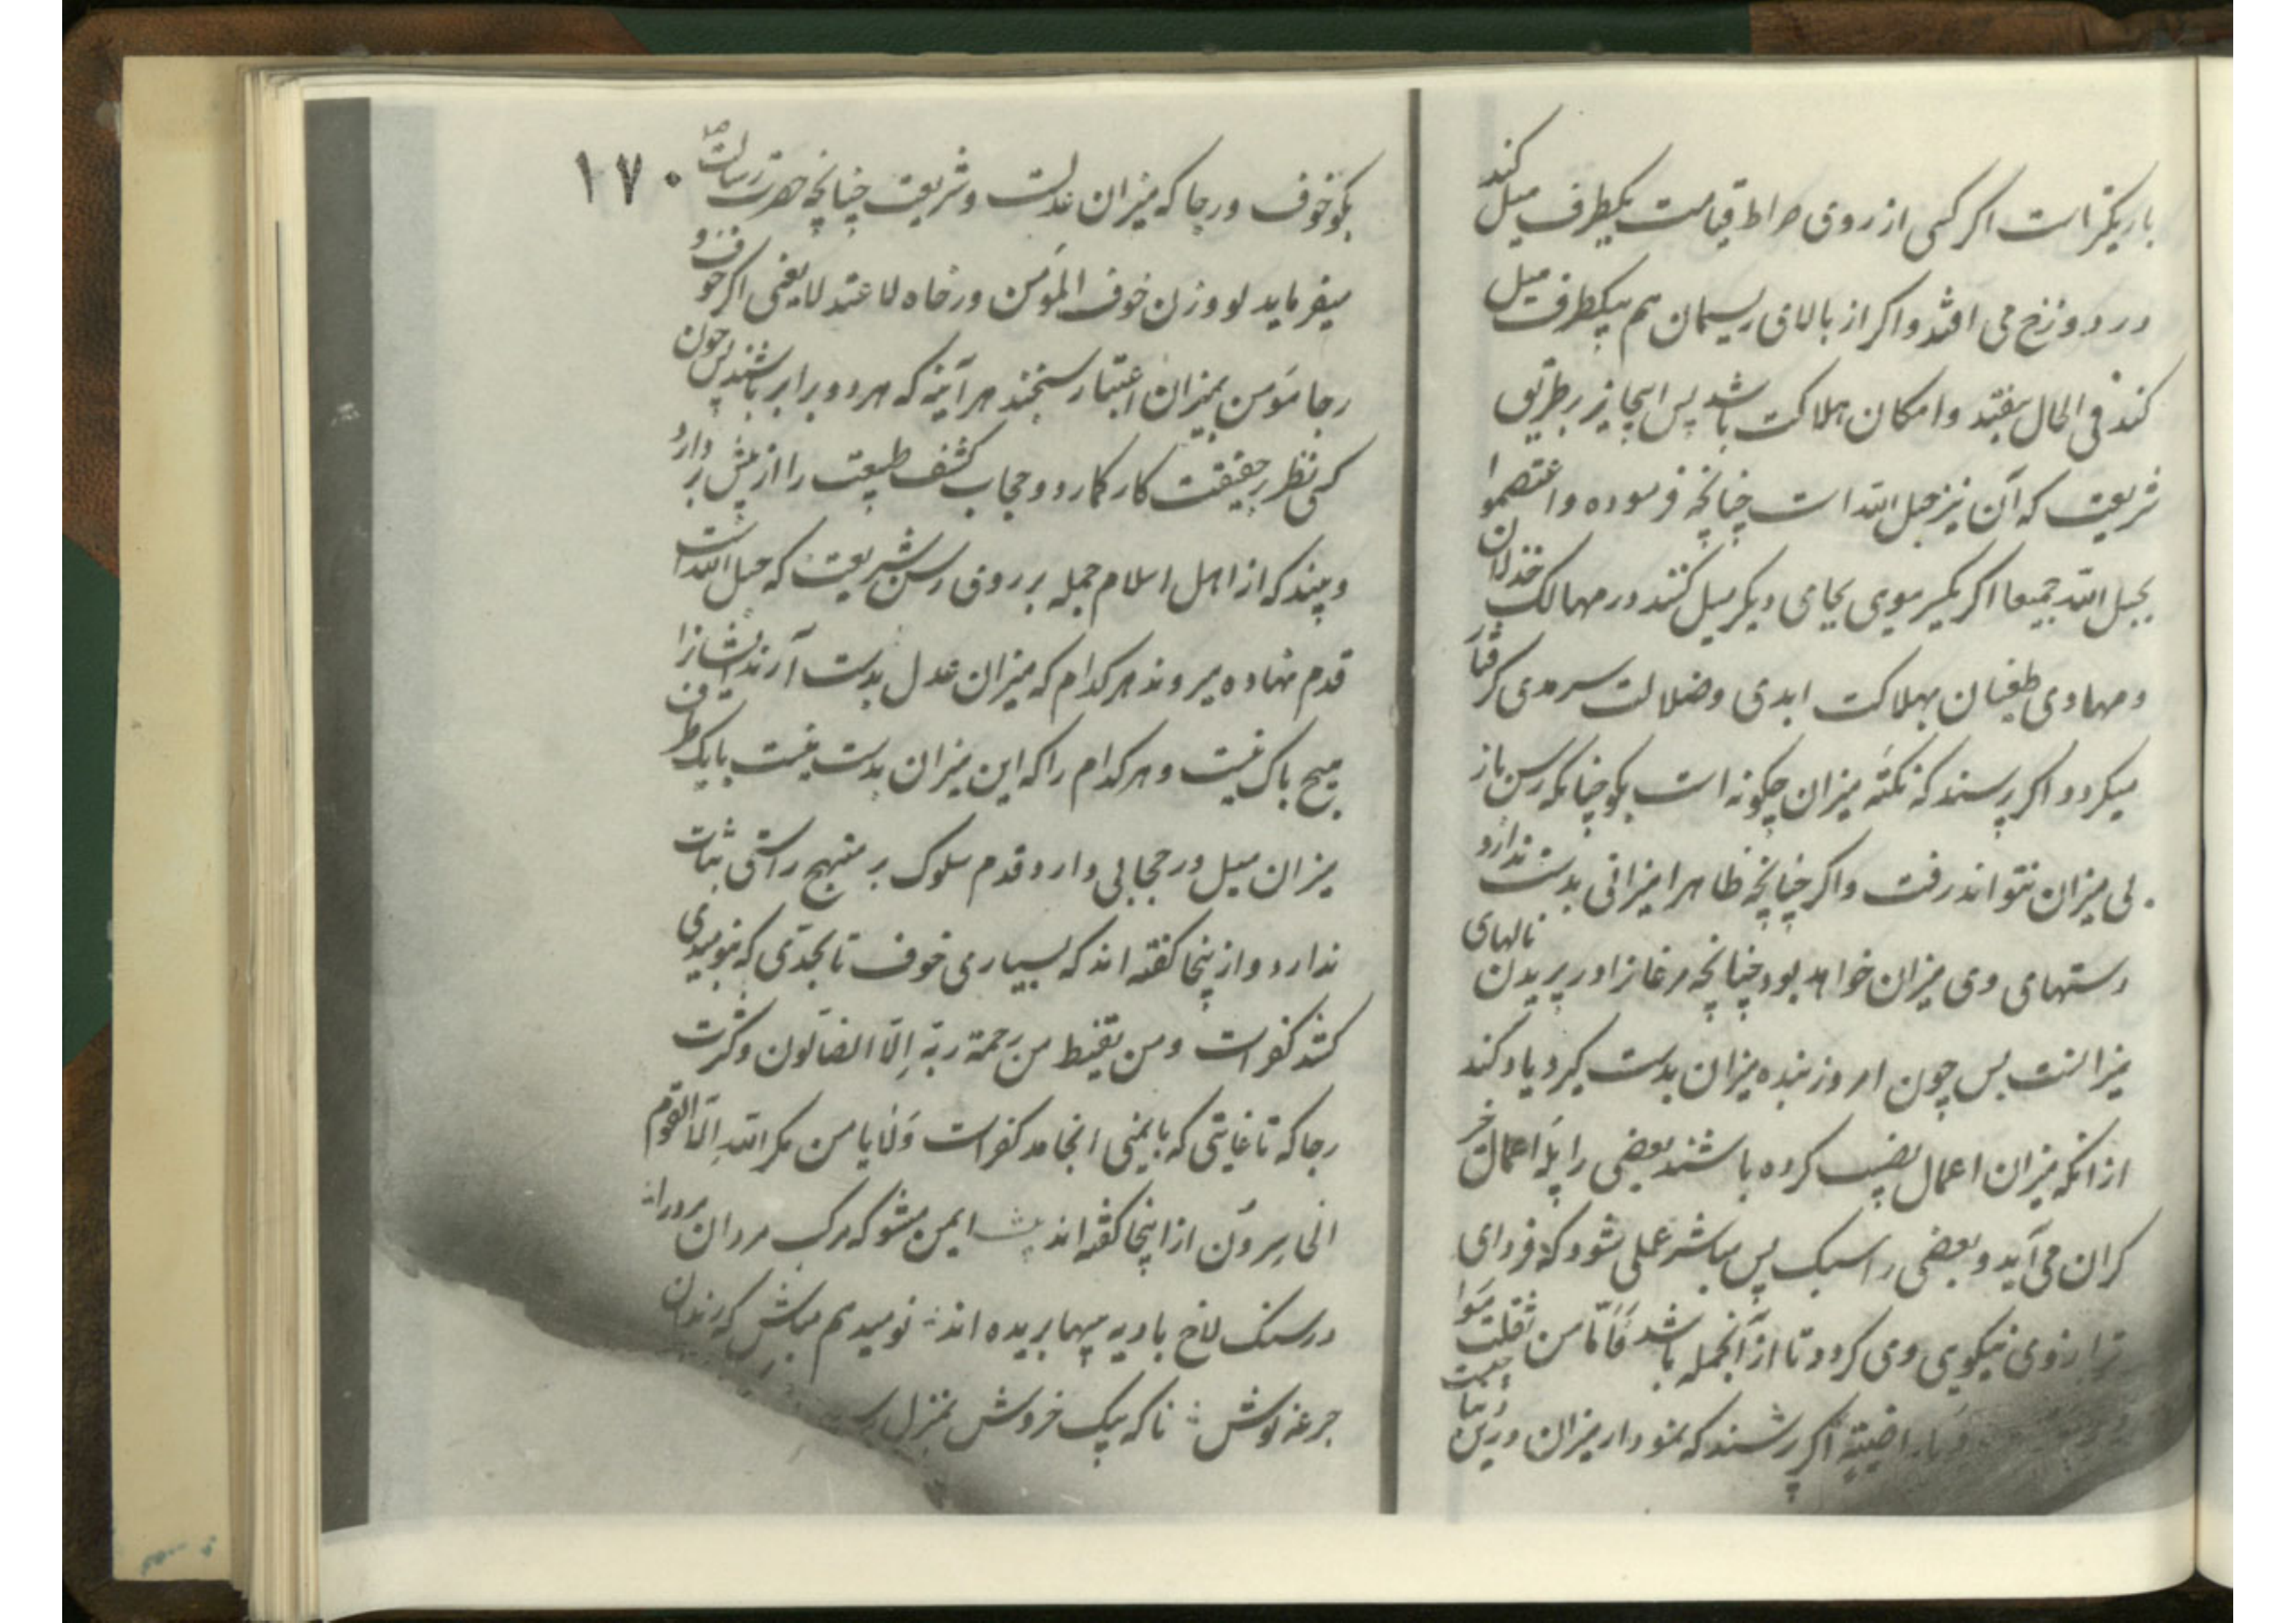 باریکترست اکر کسی از روی صراط قیامت یکطرف میل کند
در دوزخ می افتد و اکر از بالای ریسمان هم بیکطرف میل
کند فی الحال بیفتد و امکان هلاکت باشد پس اینجا نیز بر طریق
شریعت که آن نیز حبل الله است چنانچه فرموده واعتصموا
بحبل الله جمیعا اکر یکسر موی بجای دیکر میل کنند در مهالک خذلان
و مهاوی طغیان بهلاکت ابدی و ضلالت سرمدی کرفتار
میکردد اکر پرسند که نکته میزان چکونه است بکو چنانکه رسن باز
بی میزان نتواند رفت و اکر چنانچه ظاهرا میزانی بدست ندارد
دستهای وی میزان خواهد بود چنانچه مرغانرا در پریدن بالهای
میزانست پس چون امروز بنده میزان بدست کیرد یاد کند
از انکه میزان اعمال نصب کرده باشند بعضی را پله اعمال خیر
کران می آید و بعضی را سبک پس مباشر عملی شود که فردای
ترازوی نیکویی وی کردد تا از آنجمله باشد فَاَمّا من ثقلت موا
راضیة اکر پرسند که نمودار میزان درین دنیا چیست
بکو خوف و رجا که میزان عدلست و شریعت چنانچه حضرت رسالت ص ۱۷۰
میفرماید لو وزن خوف المؤمن ورجاه لاعتدلا یعنی اکر خوف و
رجا مؤمن بمیزان اعتبار سنجند هر آینه که هر دو برابر باشند پس چون
کسی نظر بر حقیقت کار کمارد و حجاب کشف طبیعت را از پیش بر دارد
و بیند که از اهل اسلام جمله بر روی رسن شریعت که حبل الله است
قدم نهاده میروند هر کدام که میزان عدل بدست آرند ایشانرا
هیچ باک نیست و هر کدام را که این میزان بدست نیست با یک طرف
میزان میل در حجابی دارد قدم سلوک بر منهج راستی ثبات
ندارد و از ینجا کفته اند که بسیاری خوف تا بحدی که بنومیدی
کشد کفرست ومن یقنط من رحمة ربه اِلّا الضالون و کثرت
رجا که تا غایتی که بایمنی انجامد کفرست وَلا یامن مکر الله اِلّا القوم
الخاسِروُن از اینجا کفته اند ایمن مشو که مرکب مردان مرد را
در سنک لاخ بادیه پیها بریده اند نومید هم مباش که رندان
جرعه نوش ناکه بیک خروش بمنزل